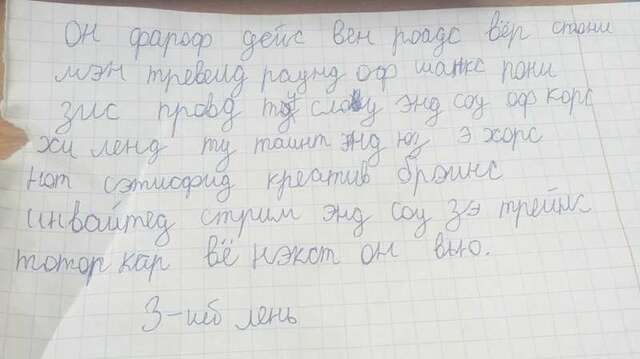 Он фароф дейс вен роадс вёр стони
мэн тревелд раунд оф шанкс пони
зис прувд ту слоу энд соу оф корс
хи ленд ту таинт энд юз э хорс
нот сэтисфид креатив брэинс
инвайтед стрим энд соу зэ трейнс
тотор кар вё нэкст он вью.
З-иб лень